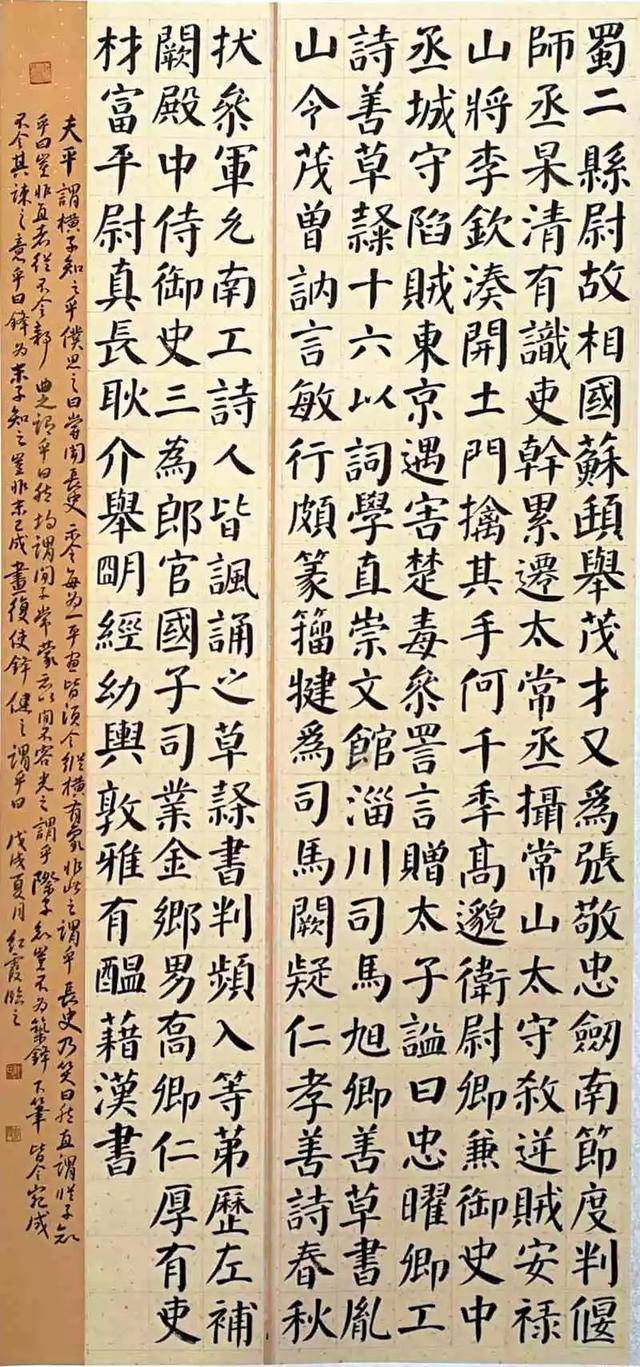 蜀二縣尉故相國蘇頲舉茂才又爲張敬忠劒南節度判偃
師丞杲清有識吏幹累遷太常丞攝常山太守殺逆賊安禄
山將李欽湊開土門擒其手何千秊高邈衛尉卿兼御史中
丞城守陷賊東京遇害楚毒參詈言贈太子謚曰忠曜卿工
詩善草隸十六以詞學直崇文館淄川司馬旭卿善草書胤
山令茂曾訥言敏行頗篆籀犍爲司馬闕疑仁孝善詩春秋
状參軍允南工詩人皆諷誦之草隸書判頻入等第歷左補
闕殿中侍御史三為郎官國子司業金鄉男喬卿仁厚有吏
材富平尉真長耿介舉明經幼輿敦雅有醖藉漢書
夫平謂橫子知之乎僕思之曰嘗聞長史示令每為一平画皆須令縱橫有象非此之謂乎長史乃笑曰然直謂縱子知
乎曰豈非直者從不令邪曲之謂乎曰然均謂間子常蒙示以間不容光之謂乎際子知豈不為築鋒下筆皆令完成
不令其疎之意乎曰鋒為末子知之豈非末已成畫復使鋒健之謂乎曰 戊戌夏月 紅霞臨之